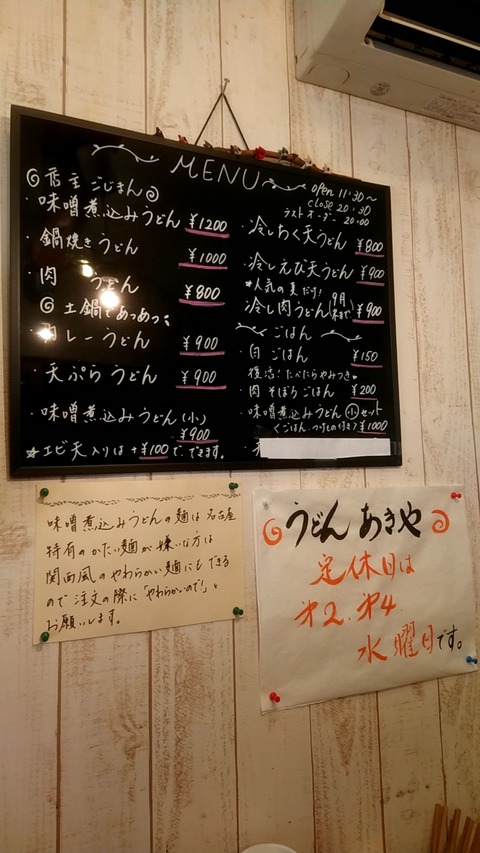 MENU
open 11:30~
close 20:30
ラストオーダー 20:00
店主ごじまん
・味噌煮込みうどん ¥1200
・鍋焼きうどん ¥1000
・肉うどん ¥800
土鍋であつあつ
カレーうどん ¥900
・天ぷらうどん ¥900
・味噌煮込みうどん(小)
¥900
★エビ天入りは+¥100でできます。
・冷しちく天うどん ¥800
・冷しえび天うどん ¥900
★人気の夏だけ!
冷し肉うどん 9月末まで ¥900
ごはん
・白ごはん ¥150
復活!たべたらやみつき
・肉そぼろごはん ¥200
・味噌煮込みうどん小セット
くごはん、つけもの付き〉¥1000
味噌煮込みうどんの麺は名古屋
特有のかたい麺が嫌いな方は
関西風のやわらかい麺にもできる
ので注文の際に「やわらかいので!」と
お願いします。
うどん あきや
定休日は
第2.第4
水曜日です。